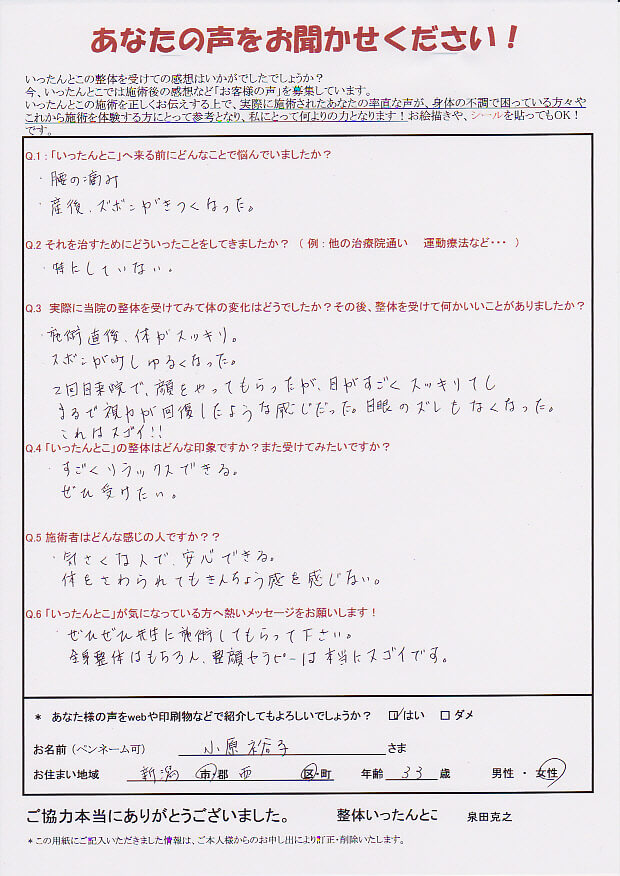 あなたの声をお聞かせください！
いったんとこの整体を受けての感想はいかがでしたでしょうか？
今、いったんとこでは施術後の感想など「お客様の声」を募集しています。
いったんとこの施術を正しくお伝えする上で、実際に施術されたあなたの率直な声が、身体の不調で困っている方々や
これから施術を体験する方にとって参考となり、私にとって何よりの力となります！お絵描きや、シールを貼ってもOK！
です。
Q.1：「いったんとこ」へ来る前にどんなことで悩んでいましたか？
・腰の痛み
・産後、ズボンがきつくなった。
Q.2 それを治すためにどういったことをしてきましたか？（例：他の治療院通い　運動療法など・・・）
・特にしていない。
Q.3 実際に当院の整体を受けてみて体の変化はどうでしたか？その後、整体を受けて何かいいことがありましたか？
・施術直後、体がスッキリ。
ズボンが少しゆるくなった。
2回目来院で、顔をやってもらったが、目がすごくスッキリして
まるで視力が回復したような感じだった。目眼のズレもなくなった。
これはスゴイ!!
Q.4「いったんとこ」の整体はどんな印象ですか？また受けてみたいですか？
・すごくリラックスできる。
ぜひ受けたい。
Q.5 施術者はどんな感じの人ですか？？
・気さくな人で、安心できる。
体をさわられてもきんちょう感を感じない。
Q.6「いったんとこ」が気になっている方へ熱いメッセージをお願いします！
・ぜひぜひ先生に施術してもらって下さい。
全身整体はもちろん、整顔セラピーは本当にスゴイです。
＊ あなた様の声をwebや印刷物などで紹介してもよろしいでしょうか？ ☑はい □ダメ
お名前（ペンネーム可） 小原裕子 さま
お住まい地域 新潟 市/郡 西 区・町 年齢 33 歳 男性・女性
ご協力本当にありがとうございました。 整体いったんとこ 泉田克之
＊この用紙にご記入いただきました情報は、ご本人様からのお申し出により訂正・削除いたします。